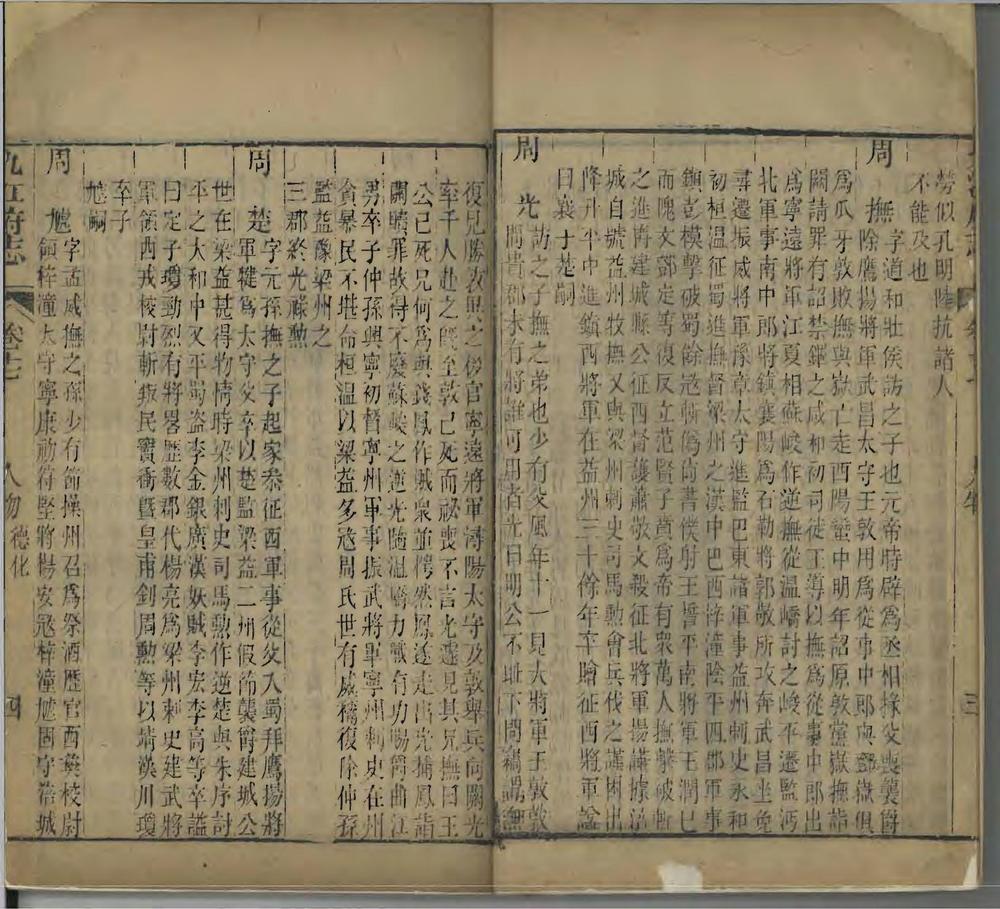 勞似孔明陸抗諸人
不能及也
周撫字道和壯侯訪之子也元帝時辟為丞相掾父喪襲爵
除鷹揚將軍武昌太守王敦用為從事中郎與鄧嶽俱
為爪牙敦敗撫與嶽亡走西陽蠻中明年詔原敦黨嶽撫詣
闕請罪有詔禁錮之咸和初司徒王導以撫為從事中郎出
為寧遠將軍江夏相蘇峻作逆撫從溫嶠討之峻平遷監沔
北軍事南中郎將鎮襄陽為石勒將郭敬所攻奔武昌坐免
尋遷振威將軍豫章太守進監巴東諸軍事益州刺史永和
初桓温征蜀進撫督梁州之漢中巴西梓潼陰平四郡軍事
鎮彭模擊破蜀餘寇斬偽尚書僕射王誓平南將軍王潤已
而隗文鄧定等復反立范賢子賁為帝有衆萬人撫擊破斬
之進爵建城縣公征西督護蕭敬文殺征北將軍楊謙據涪
城自號益州牧撫又與梁州刺史司馬勲會兵伐之謹困出
降升平中進鎮西將軍在益州三十餘年卒贈征西將軍諡
曰襄子楚嗣
周光訪之子撫之弟也少有父風年十一見大將軍王敦敦
問貴郡未有將誰可用者光曰明公不恥下問竊謂無
復見勝敦思之後官寧遠將軍潯陽太守及敦舉兵向闕光
率千人赴之既至敦已死而祕喪不言光遽見其兄撫曰王
公已死兄何為與錢鳳作賊衆並愕然鳳遂走出光捕鳳詣
闕贖罪故得不廢蘇峻之逆光隨溫嶠力戰有功賜爵曲江
男卒子仲孫興寧初督寧州軍事振武將軍寧州刺史在州
貪暴民不堪命桓温以梁益多寇周氏世有威稱復除仲孫
監益豫梁州之
三郡終光祿勲
周楚字元孫撫之子起家叅征西軍事從父入蜀拜鷹揚將
軍犍為太守父卒以楚監梁益二州假節襲爵建城公
世在梁益甚得物情時梁州刺史司馬勲作逆楚與朱序討
平之大和中又平蜀盗李金銀廣漢妖賊李宏李高等卒諡
曰定子瓊勁烈有將畧歷數郡代楊亮為梁州刺史建武將
軍領西戎校尉斬叛民竇衝暨皇甫釗周勲等以靖漢川瓊
卒子
虓嗣
周虓字孟威撫之孫少有節操州召為祭酒歷官西夷校尉
領梓潼太守寧康初苻堅將楊安寇梓潼虓固守涪城
九江府志 卷 人物 德化 四